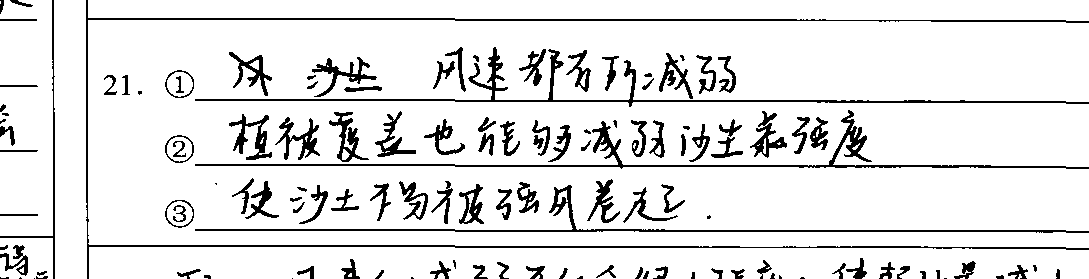 21. ① 风速都有所减弱
② 植被覆盖也能够减弱沙尘暴强度
③ 使沙土不易被强风卷起.